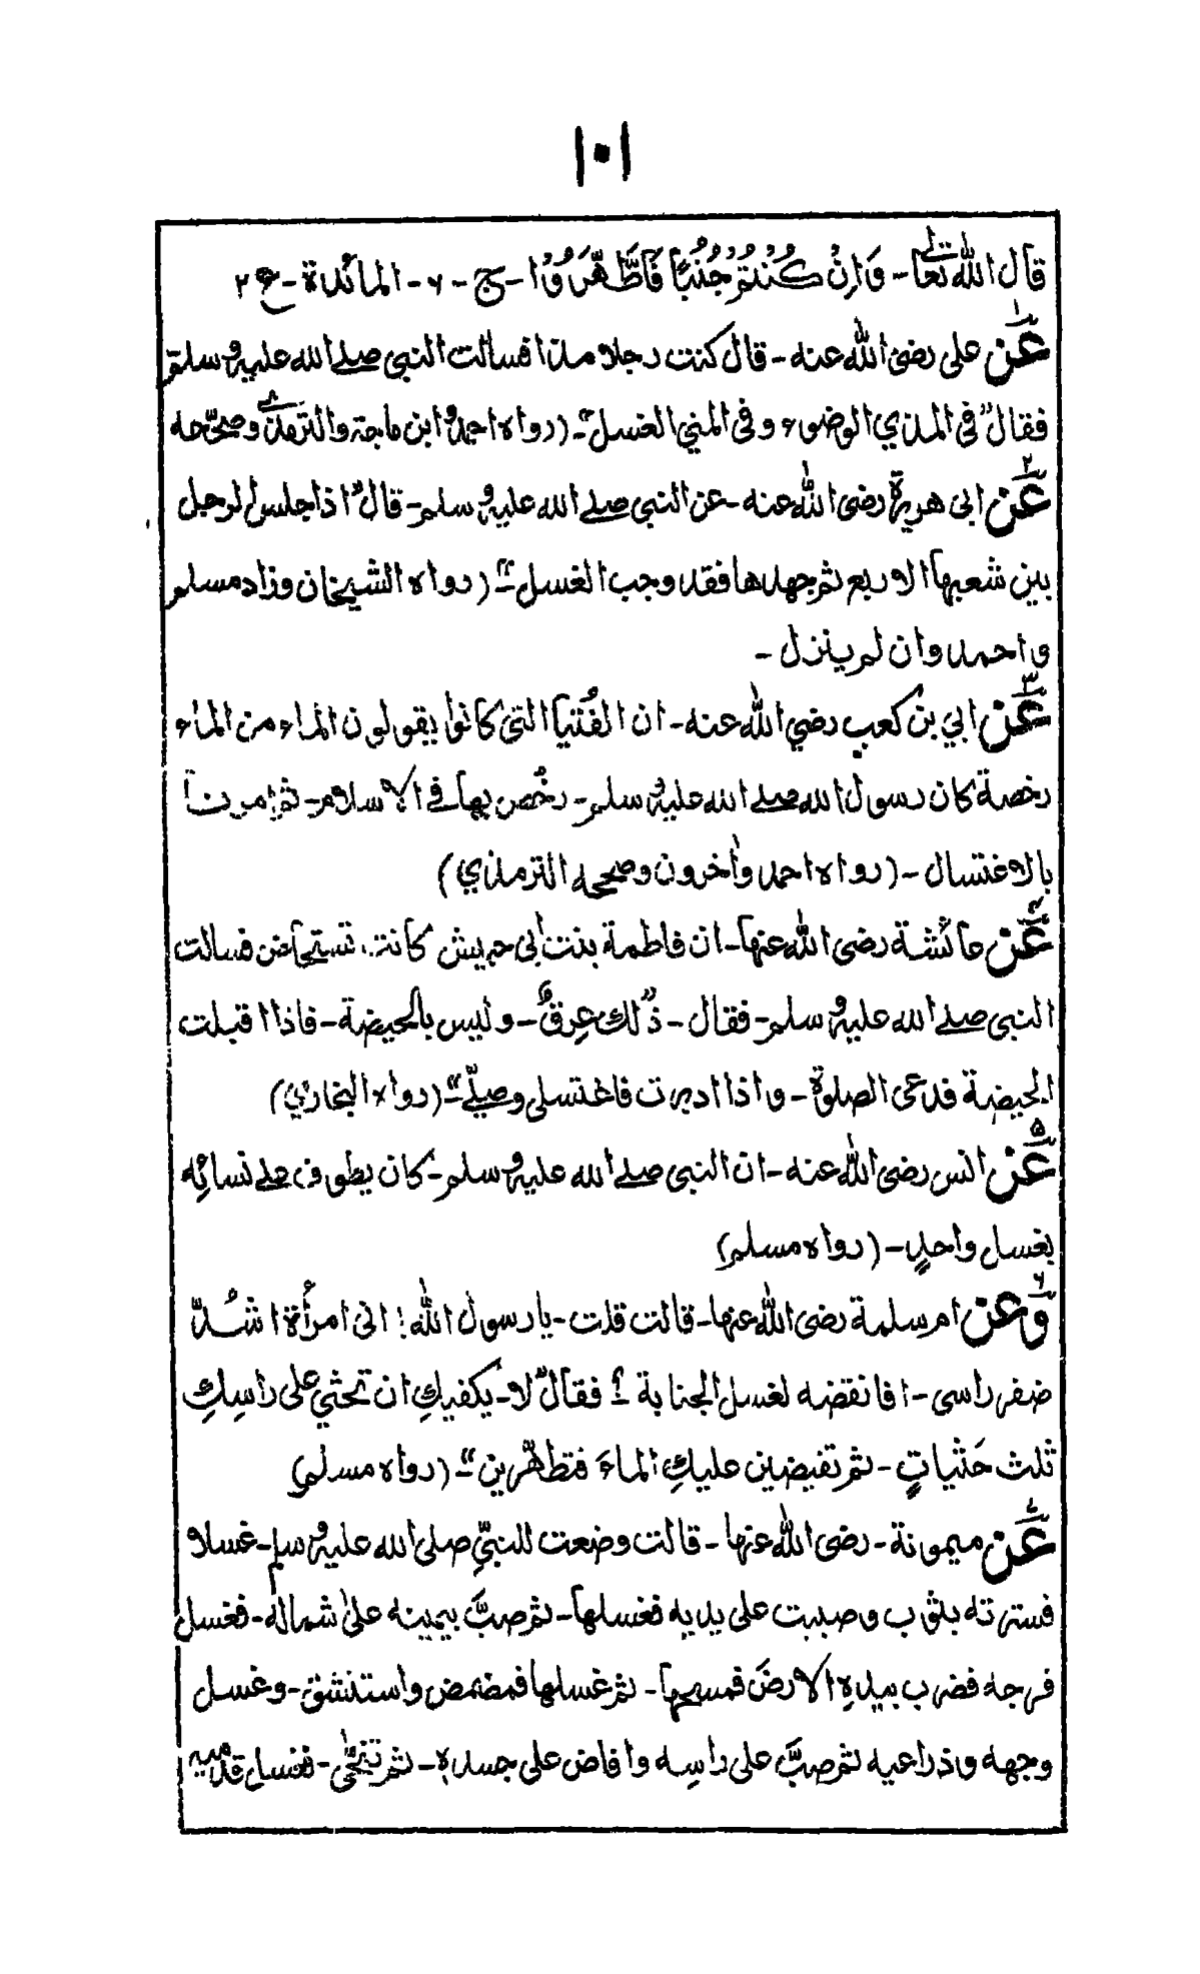 ١٠١
قال الله تعالىٰ - وَاِنْ كُنْتُمْ جُنُبًا فَاطَّهَّرُوْا - ج - ٦ - المائدة - ع ٢
١ عَن على رضى الله عنه - قال كنت رجلا مذا فسالت النبى صلى الله عليه وسلم
فقال "فى المذي الوضوء وفى المني الغسل" - (رواه احمد وابن ماجة والترمذى وصحّحه
٢ عَن ابى هريرة رضى الله عنه - عن النبى صلى الله عليه وسلم - قال "اذا جلس الرجل
بين شعبها الاربع ثم جهدها فقد وجب الغسل" - (رواه الشيخان وزاد مسلم
واحمد وان لم ينزل -
٣ عَن ابي بن كعب رضي الله عنه - ان الفُتيا التى كانوا يقولون الماء من الماء
رخصة كان رسول الله صلى الله عليه وسلم - رخُص بها فى الاسلام - ثم امرنا
بالاغتسال - (رواه احمد واٰخرون وصححه الترمذي)
٤ عَن عائشة رضى الله عنها - ان فاطمة بنت ابى حبيش كانت تستحاض فسالت
النبى صلى الله عليه وسلم - فقال - "ذٰلك عِرقٌ - وليس بالحيضة - فاذا اقبلت
الحيضة فدعى الصلوٰة - واذا ادبرت فاغتسلى وصلّى" - (رواه البخاري)
٥ عَن انس رضى الله عنه - ان النبى صلى الله عليه وسلم - كان يطوف على نسائِه
بغسل واحدٍ - (رواه مسلم)
٦ وَعن ام سلمة رضى الله عنها - قالت قلت - يا رسول الله! انى امرأة اشُدُّ
ضفر راسى - افانقضه لغسل الجنابة ؟ فقال "لا - يكفيكِ ان تحثي على راسِكِ
ثلث حَثياتٍ - ثم تفيضين عليكِ الماءَ فتطهّرين" - (رواه مسلم)
٧ عَن ميمونة - رضى الله عنها - قالت وضعت للنبيِّ صلى الله عليه وسلم - غسلا
فسترته بثوب وصببت على يديه فغسلها - ثم صبَّ بيمينه علىٰ شماله - فغسل
فرجه فضرب بيدهِ الارضَ فمسحها - ثم غسلها فمضمض واستنشق - وغسل
وجهه وذراعيه ثم صبَّ على راسِه وافاض على جسدهٖ - ثم تنحّٰى - فغسل قدميه